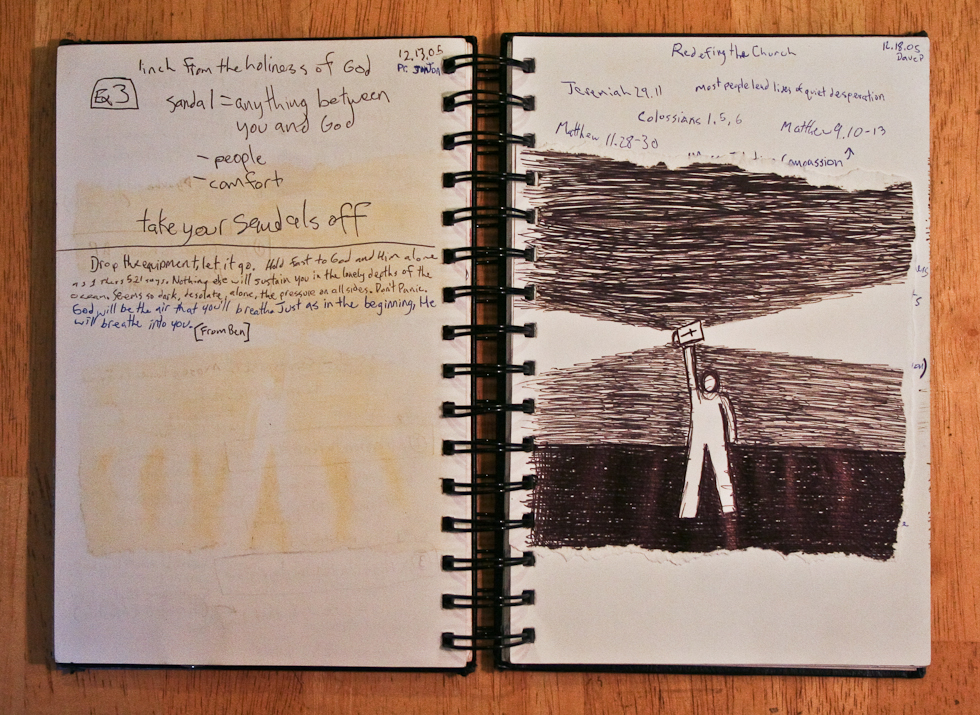 1 inch from the holiness of God
12.13.05
Ex. 3
sandal = anything between
you and God
- people
- comfort
take your sandals off
Drop the equipment, let it go. Hold fast to God and Him alone
as 1 5:21 says. Nothing else will sustain you in the lonely depths of the
ocean. Seems so dark, desolate, alone, the pressure on all sides. Don't Panic.
God will be the air that you'll breathe. Just as in the beginning, He
will breathe into you. [From Ben]
Redefing the Church
12.18.05
Dave P
Jeremiah 29.11
most people lead lives of quiet desperation
Colossians 1, 5, 6
Matthew 11.28-30
Matthew 9.10-13
compassion